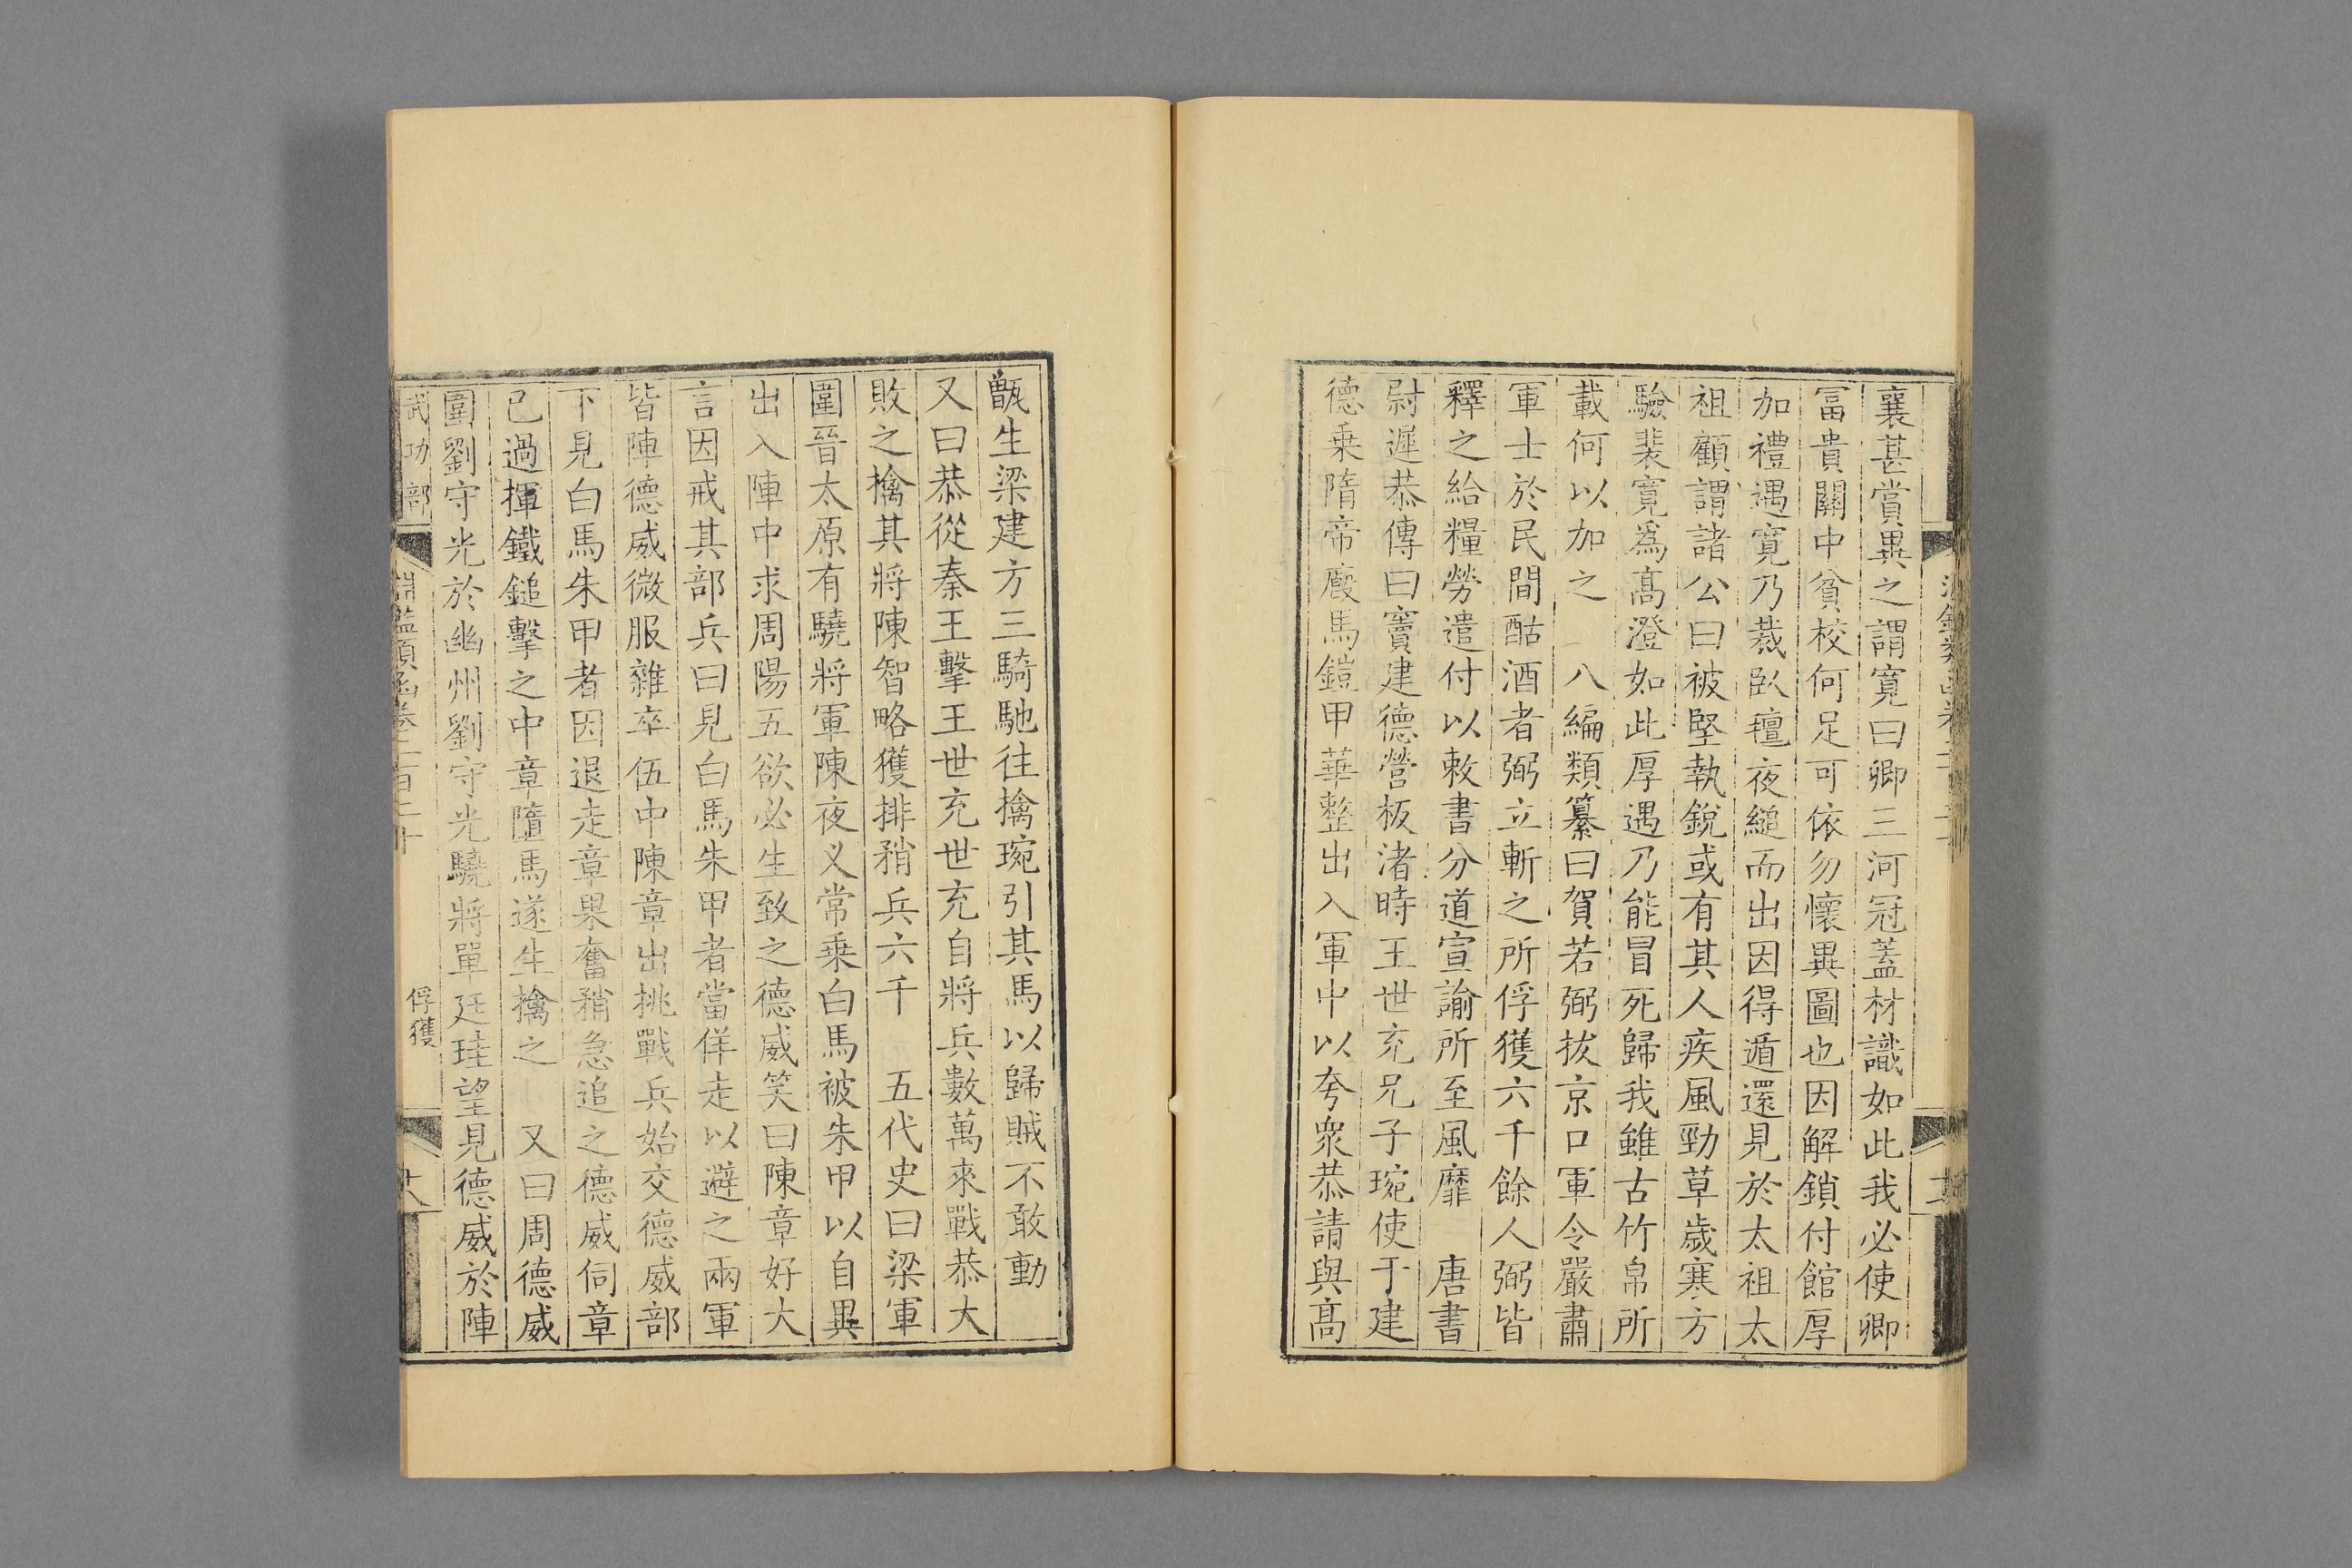 襄甚賞異之謂寬曰卿三河冠蓋材識如此我必使卿
富貴關中貧校何足可依勿懷異圖也因解鎖付館厚
加禮遇寬乃裁臥氊夜縋而出因得遁還見於太祖太
祖顧謂諸公曰被堅執銳或有其人疾風勁草歲寒方
驗裴寬爲髙澄如此厚遇乃能冒死歸我雖古竹帛所
載何以加之 八編類纂曰賀若弼拔京口軍令嚴肅
軍士於民間酤酒者弼立斬之所俘獲六千餘人弼皆
釋之給糧勞遣付以敕書分道宣諭所至風靡 唐書
尉遲恭傳曰竇建德營板渚時王世充兄子琬使于建
德乗隋帝廄馬鎧甲華整出入軍中以夸衆恭請與髙
甑生梁建方三騎馳往擒琬引其馬以歸賊不敢動
又曰恭從秦王擊王世充世充自將兵數萬來戰恭大
敗之擒其將陳智略獲排矟兵六千 五代史曰梁軍
圍晉太原有驍將軍陳夜义常乗白馬被朱甲以自異
出入陣中求周陽五欲必生致之德威笑曰陳章好大
言因戒其部兵曰見白馬朱甲者當佯走以避之兩軍
皆陣德威微服雜卒伍中陳章出挑戰兵始交德威部
下見白馬朱甲者因退走章果奮矟急追之德威伺章
已過揮鐵鎚擊之中章墮馬遂生擒之 又曰周德威
圍劉守光於幽州劉守光驍將單廷珪望見德威於陣
武功部
淵鑑類函卷二百二十
俘獲